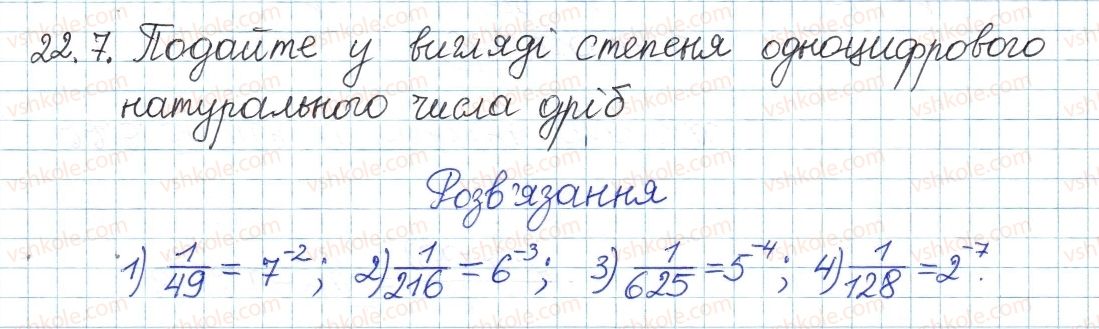 22.7. Подайте у вигляді степеня одноцифрового
натурального числа дріб
Розв'язання
1) 1/49 = 7^-2; 2) 1/216 = 6^-3; 3) 1/625 = 5^-4; 4) 1/128 = 2^-7.